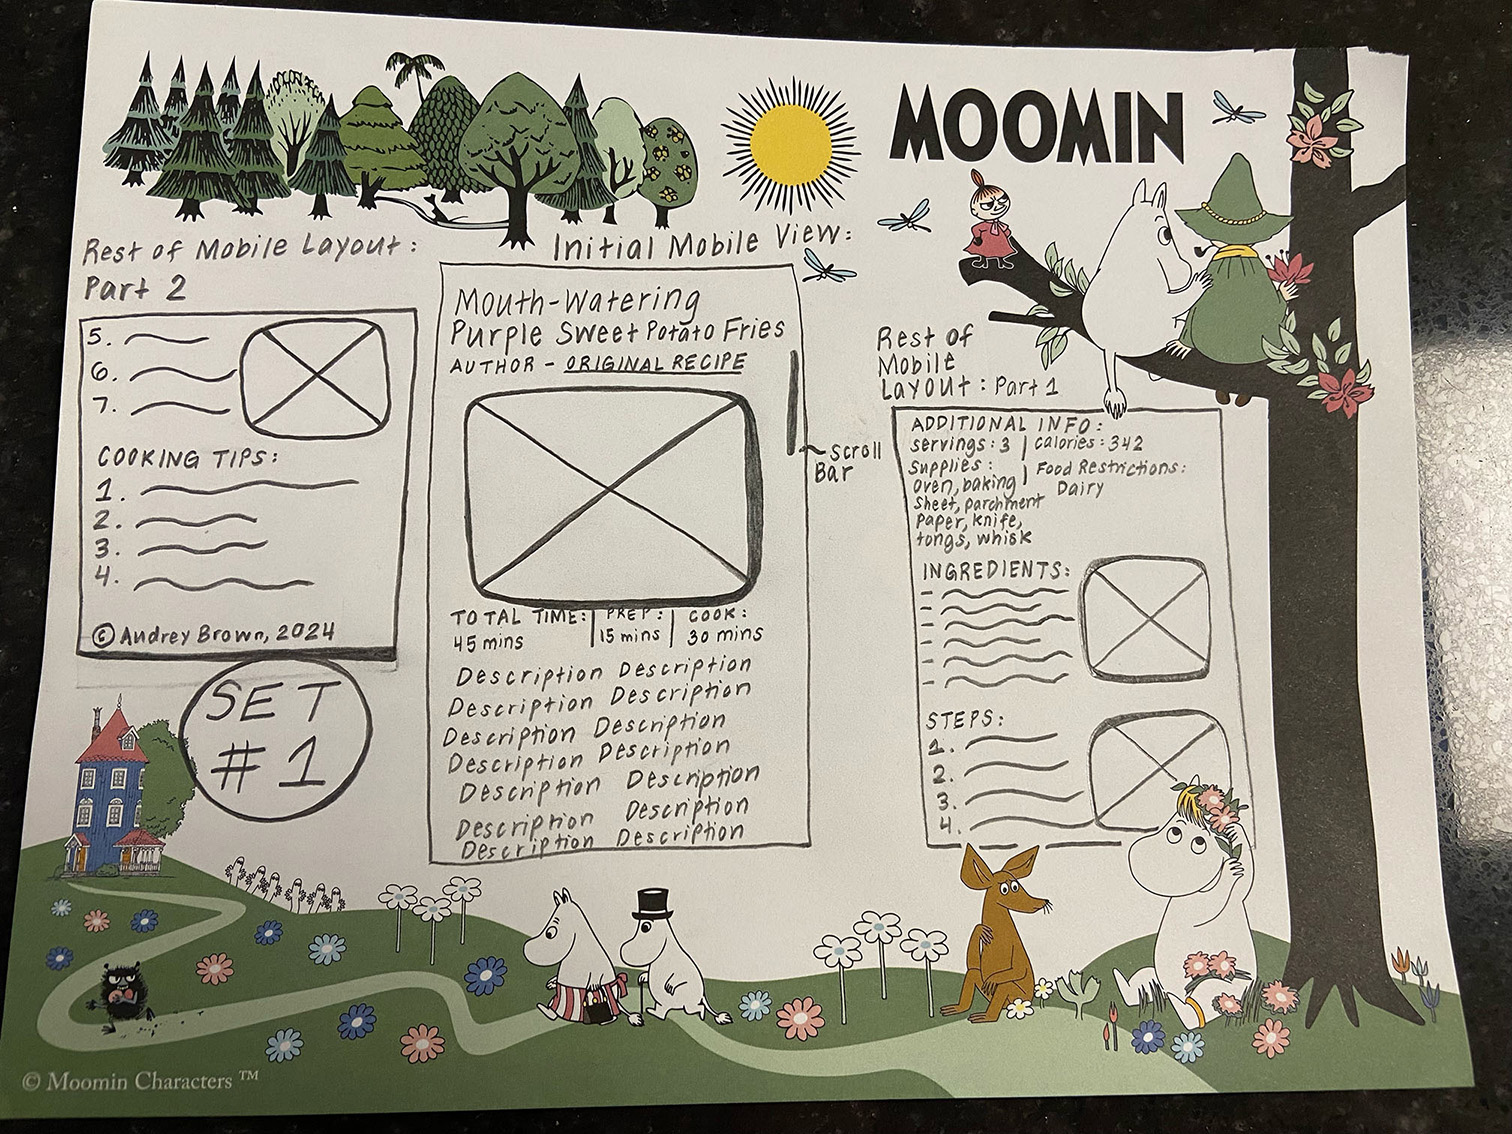 MOOMIN
Initial Mobile View:
Mouth-Watering
Purple Sweet Potato Fries
AUTHOR - ORIGINAL RECIPE
scroll
Bar
TOTAL TIME: | PREP: | COOK:
45 mins | 15 mins | 30 mins
Description Description
Description Description
Description Description
Description Description
Description Description
Description Description
Description Description
Rest of
Mobile
Layout: Part 1
ADDITIONAL INFO:
servings: 3 | calories: 342
supplies: | Food Restrictions:
oven, baking | Dairy
sheet, parchment
paper, knife,
tongs, whisk
INGREDIENTS:
STEPS:
1.
2.
3.
4.
Rest of Mobile Layout:
Part 2
5.
6.
7.
COOKING TIPS:
1.
2.
3.
4.
© Audrey Brown, 2024
SET
#1
© Moomin Characters ™